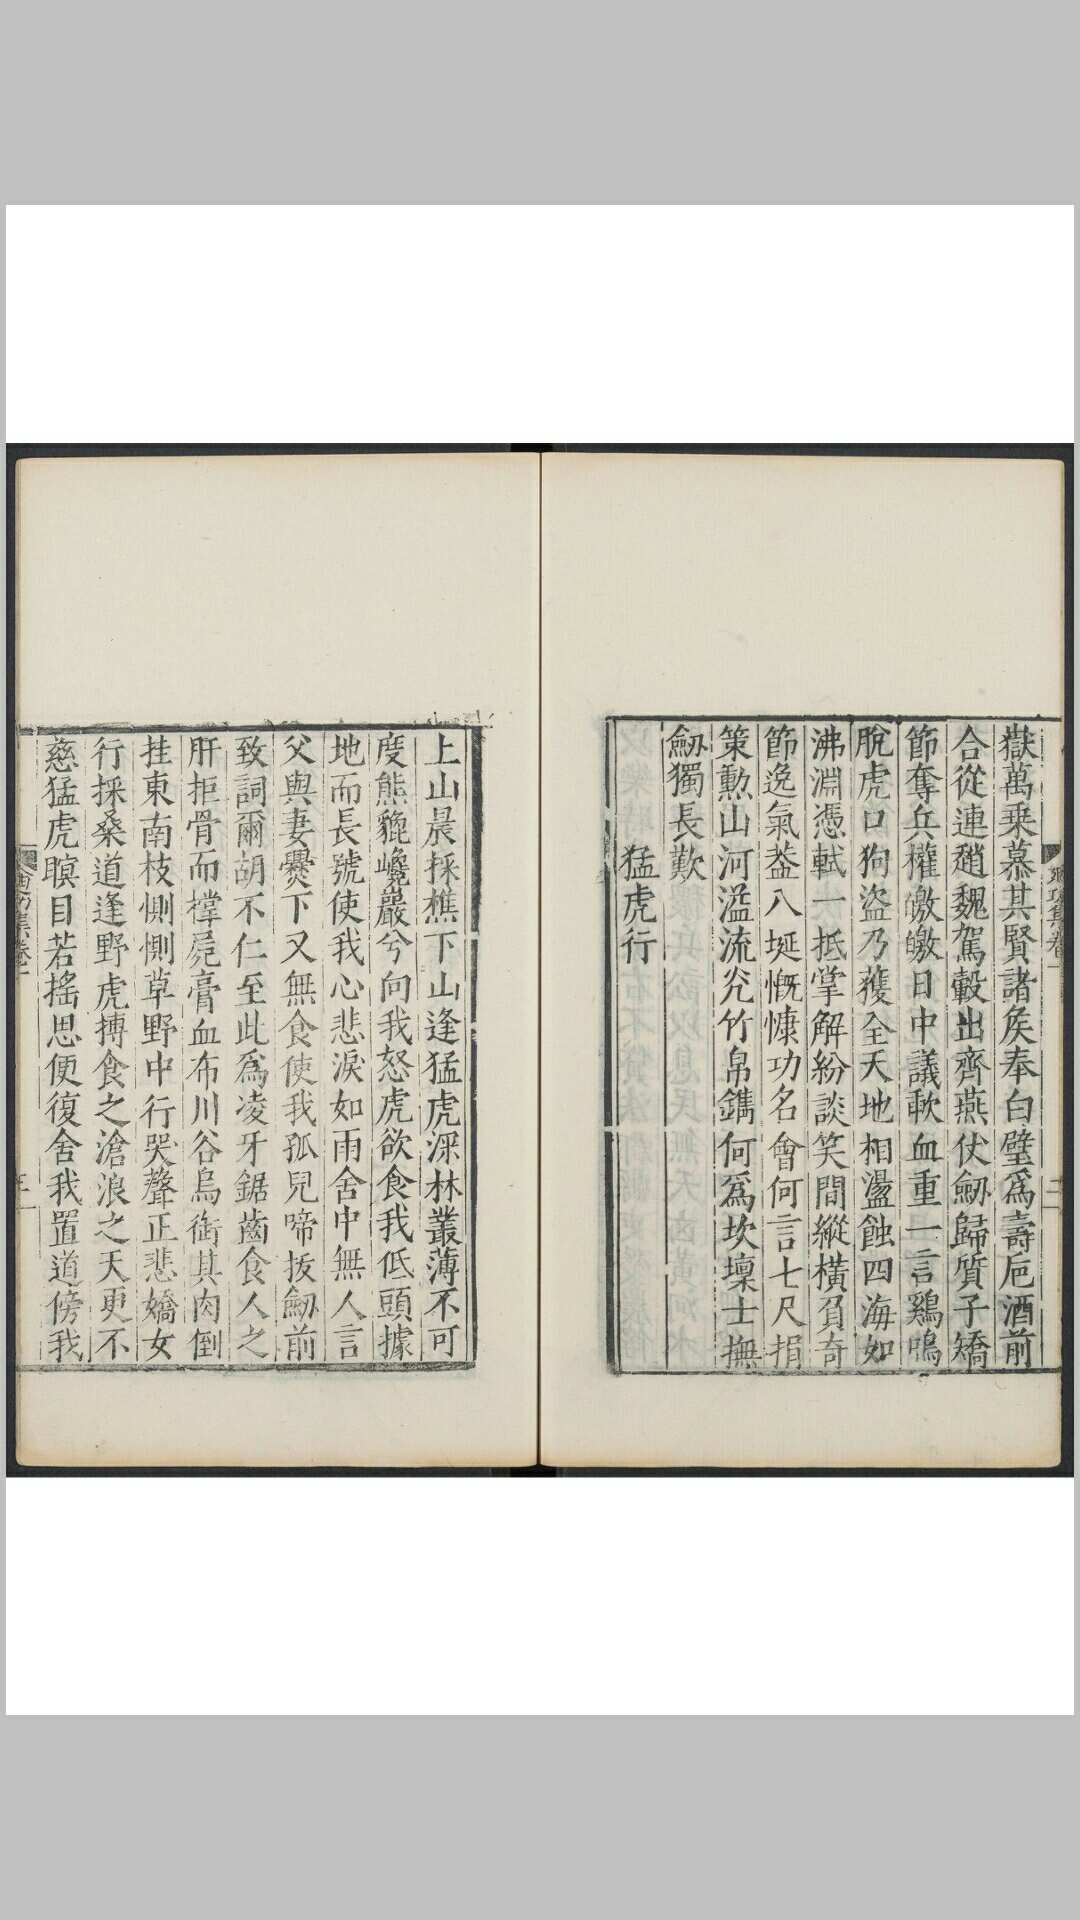 嶽萬乗慕其賢諸矦奉白璧爲壽巵酒前
合從連趙魏駕轂出齊燕伏劒歸質子矯
節奪兵權皦皦日中議歃血重一言鷄鳴
脫虎口狗盜乃獲全天地相盪蝕四海如
沸淵憑軾一抵掌解紛談笑間縱橫負奇
節逸氣葢八埏慨慷功名會何言七尺捐
策勲山河溢流光竹帛鐫何爲坎壈士撫
劒獨長歎
猛虎行
上山晨採樵下山逢猛虎深林叢薄不可
度熊羆巉巖兮向我怒虎欲食我低頭據
地而長號使我心悲淚如雨舍中無人言
父與妻爨下又無食使我孤兒啼拔劒前
致詞爾胡不仁至此爲凌牙鋸齒食人之
肝拒骨而撑屍膏血布川谷烏銜其肉倒
挂東南枝惻惻草野中行哭聲正悲嬌女
行採桑道逢野虎搏食之滄浪之天更不
慈猛虎瞑目若搖思便復舍我置道傍我